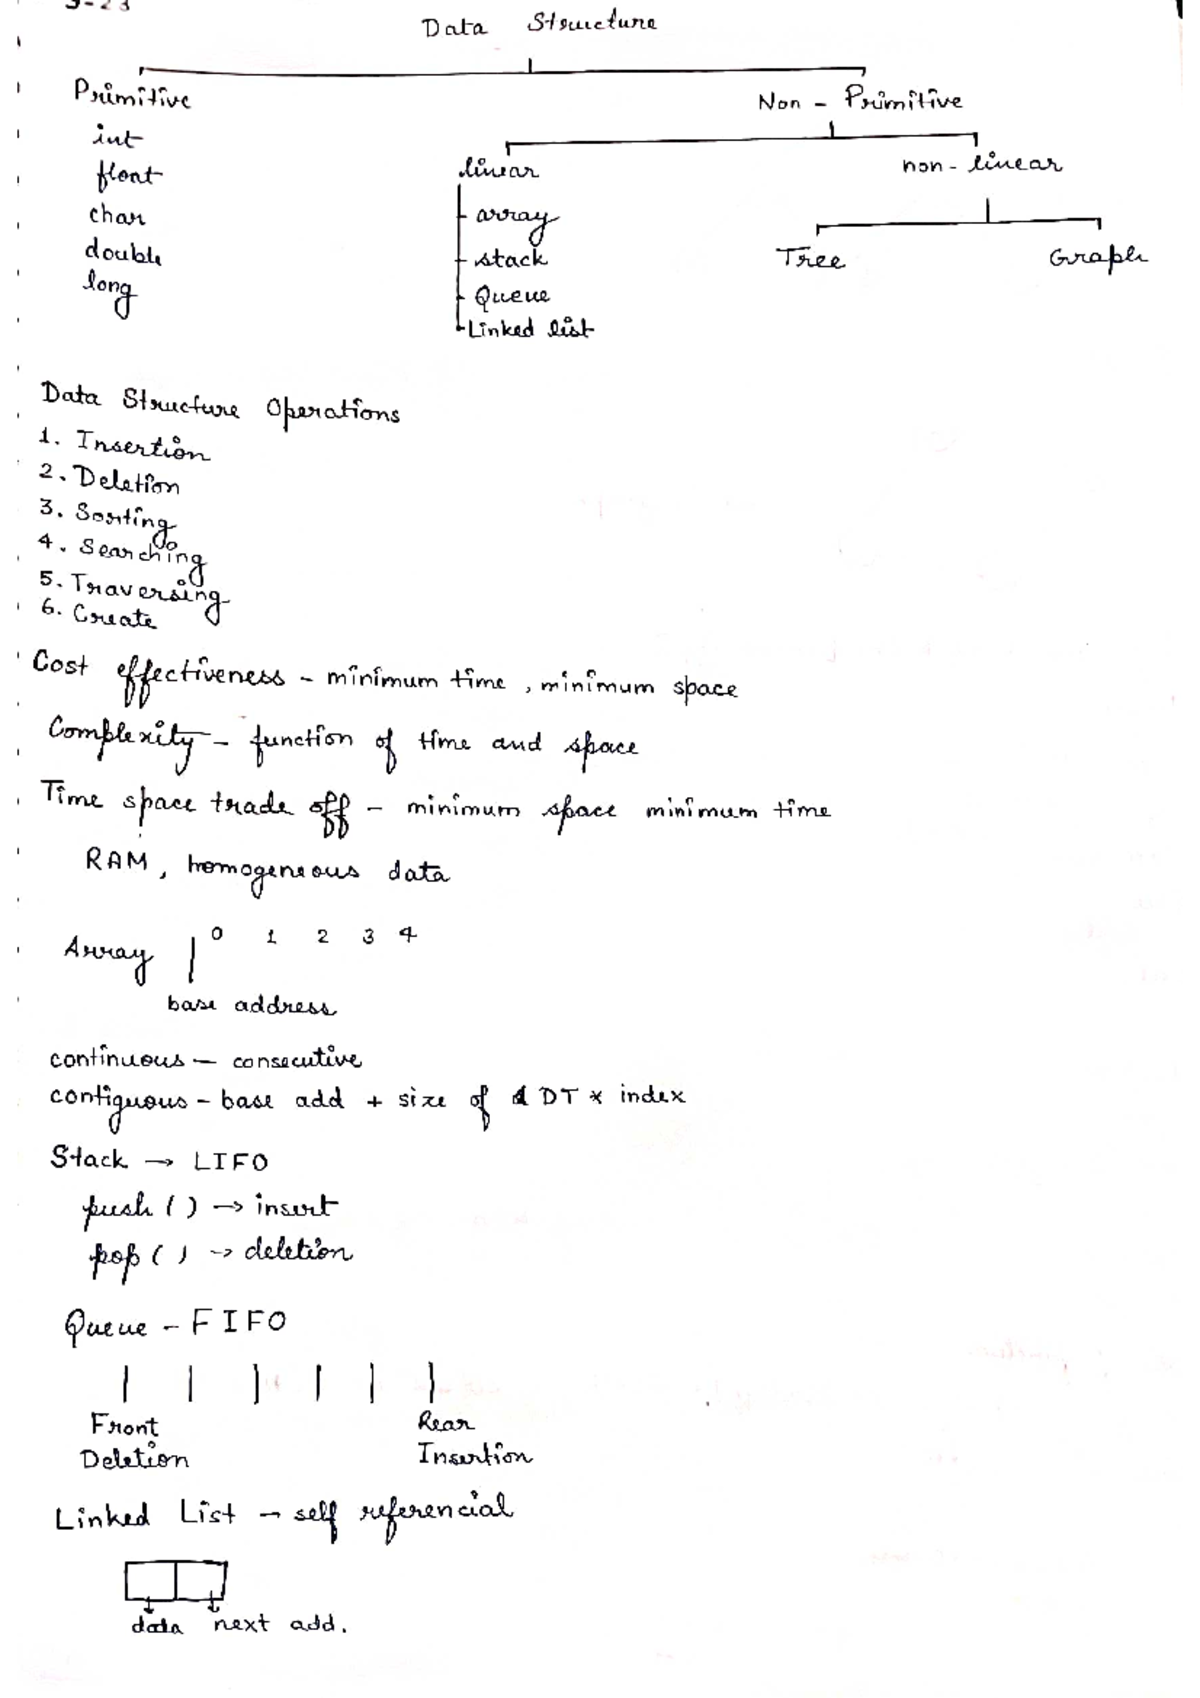 Data Structure
Primitive
Non - Primitive
int
float
char
double
long
linear
non - linear
array
stack
Queue
Linked list
Tree
Graph
Data Structure Operations
1. Insertion
2. Deletion
3. Sorting
4. Searching
5. Traversing
6. Create
Cost effectiveness - minimum time , minimum space
Complexity - function of time and space
Time space trade off - minimum space minimum time
RAM, homogeneous data
Array 0 1 2 3 4
base address
continuous - consecutive
contiguous - base add + size of DT * index
Stack → LIFO
push ( ) → insert
pop ( ) → deletion
Queue - FIFO
Front
Rear
Deletion
Insertion
Linked List → self referencial
data next add.